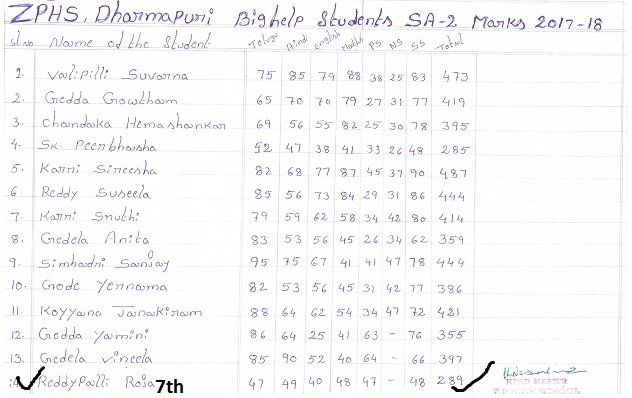 ZPHS, Dharmapuri Bighelp Students SA-2 Marks 2017-18
Sl.no Name of the Student Telugu Hindi English Maths PS NS SS Total
1. Valipilli Suvarna 75 85 79 88 38 25 83 473
2. Gedda Gowtham 65 70 70 79 27 31 77 419
3. Chandaka Hemashankar 69 56 55 82 25 30 78 395
4. Sk. Peerbhasha 52 47 38 41 33 26 48 285
5. Karri Sireesha 82 68 77 87 45 37 90 487
6. Reddy Suseela 85 56 73 84 29 31 86 444
7. Karri Sruthi 79 59 62 58 34 42 80 414
8. Gedela Anita 83 53 56 45 26 34 62 359
9. Simhadri Sanjay 95 75 67 41 41 47 78 444
10. Gode Yerrama 82 53 56 45 31 42 77 386
11. Koyyana Janakiram 88 64 62 54 34 47 72 421
12. Gedda Yamini 86 64 25 41 63 - 76 355
13. Gedela Vineela 85 90 52 40 64 - 66 397
14. ReddyPalli Roja 7th 47 49 40 48 47 - 48 289
HEAD MASTER
Z.P.HIGH SCHOOL